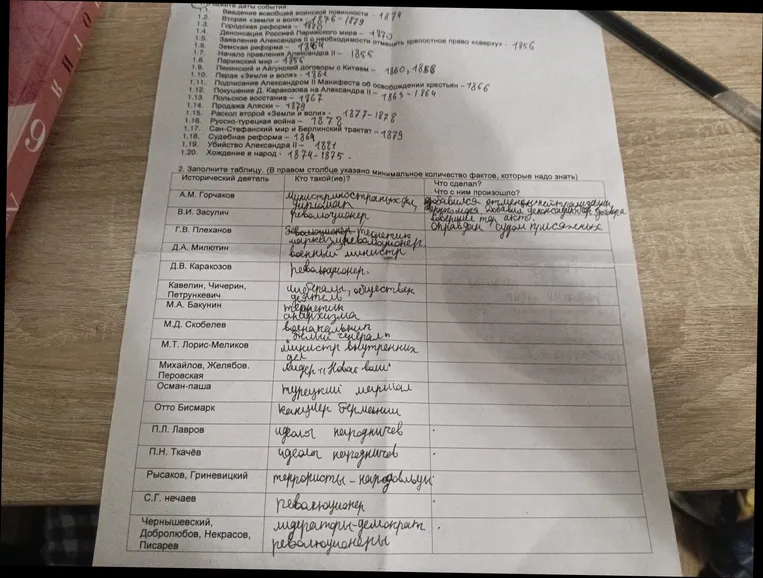 кажите даты события
1.1. Введение всеобщей воинской повинности - 1874
1.2. Вторая «земля и воля» - 1876-1879
1.3. Городская реформа - 1870
1.4. Денонсация Россией Парижского мира - 1870
1.5. Заявление Александра II о необходимости отменить крепостное право «сверху» - 1856
1.6. Земская реформа - 1864
1.7. Начало правления Александра II - 1855
1.8. Парижский мир - 1856
1.9. Пекинский и Айгунский договоры с Китаем - 1860, 1858
1.10. Перая «Земля и воля» - 1861
1.11. Подписание Александром II Манифеста об освобождении крестьян -
1.12. Покушение Д. Каракозова на Александра II - 1866
1.13. Польское восстание - 1863-1864
1.14. Продажа Аляски - 1867
1.15. Раскол второй «Земли и воли» - 1879
1.16. Русско-турецкая война - 1877-1878
1.17. Сан-Стефанский мир и Берлинский трактат - 1878
1.18. Судебная реформа - 1864
1.19. Убийство Александра II - 1881
1.20. Хождение в народ - 1874-1875
2. Заполните таблицу. (В правом столбце указано минимальное количество фактов, которые надо знать)
Исторический деятель Кто такой(ие)? Что сделал?
Что с ним произошло?
А.М. Горчаков министр иностранных дел, добился отмены нейтрализации
дипломат
В.И. Засулич революционер совершил тер. акт.
оправдан судом присяжных
Г.В. Плеханов теоретик
марксизма революционер
Д.А. Милютин военный министр
Д.В. Каракозов революционер.
Кавелин, Чичерин, либералы, обществен
Петрункевич деятель
М.А. Бакунин теоретик
анархизма
М.Д. Скобелев "белый генерал"
М.Т. Лорис-Меликов министр внутренних
дел
Михайлов, Желябов. лидер "Новой воли"
Перовская
Осман-паша турецкий маршал
Отто Бисмарк канцлер Германии
П.Л. Лавров идеолог народничев
П.Н. Ткачёв идеолог народничев
Рысаков, Гриневицкий террористы - народовольцы
С.Г. нечаев революционер
Чернышевский, литераторы-демократ
Добролюбов, Некрасов, революционеры
Писарев